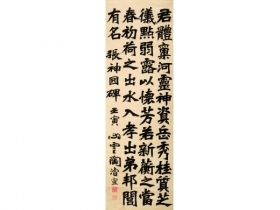 君體稟河靈神資岳秀桂質芝
儀點弱露以懷芳若新蘅之當
春初荷之出水入孝出弟邦閭
有名 張神冏碑 壬寅 心雲陶濬宣